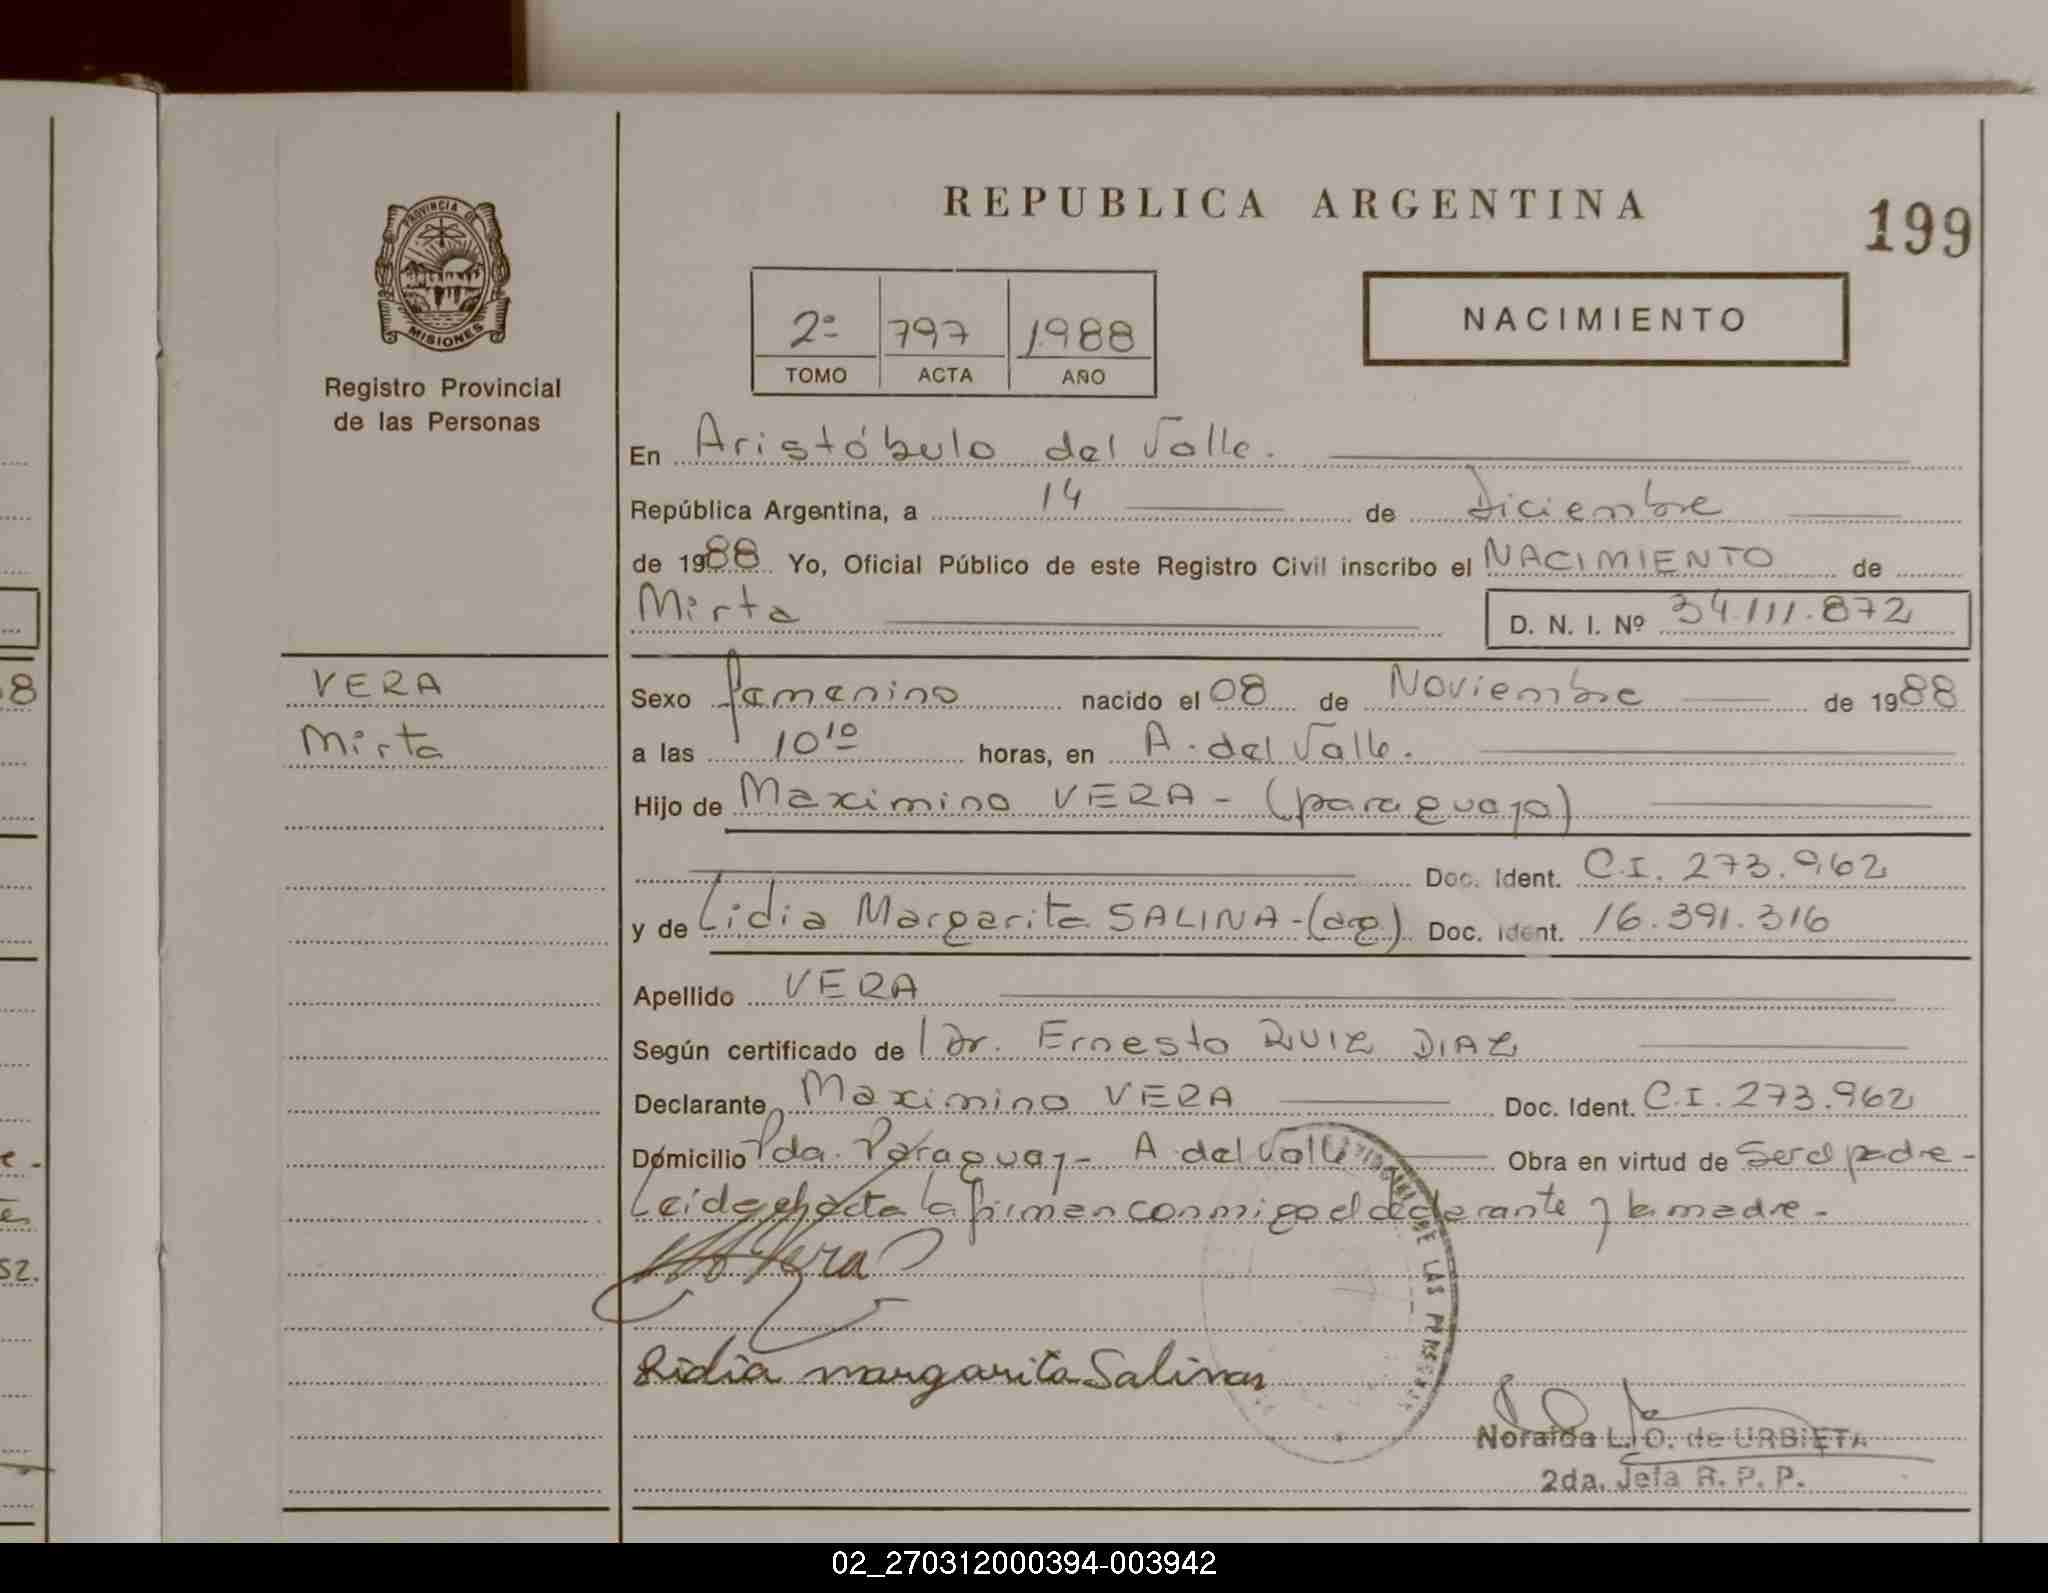 REPUBLICA ARGENTINA
199
PROVINCIA DE
MISIONES
Registro Provincial
de las Personas
2º 797 1988
TOMO ACTA AÑO
NACIMIENTO
En Aristóbulo del Valle.
República Argentina, a 14 de Diciembre
de 1988 Yo, Oficial Público de este Registro Civil inscribo el NACIMIENTO de
Mirta
D. N. I. Nº 34.111.872
VERA
Mirta
Sexo femenino nacido el 08 de Noviembre de 1988
a las 10 10 horas, en A. del Valle.
Hijo de Maximino VERA - (paraguayo)
Doc. Ident. C.I. 273.962
y de Lidia Margarita SALINA - (arg.) Doc. Ident. 16.391.316
Apellido VERA
Según certificado de Dr. Ernesto RUIZ DIAZ
Declarante Maximino VERA Doc. Ident. C.I. 273.962
Domicilio Pda. Paraguay - A. del Valle Obra en virtud de Ser el padre -
Leida el acta la firman conmigo el declarante y la madre -
Vera
Lidia margarita Salinas
DE LAS PERSONAS
Noraida L. O. de URBIETA
2da. Jefa R. P. P.
8
e -
52.
02_270312000394-003942